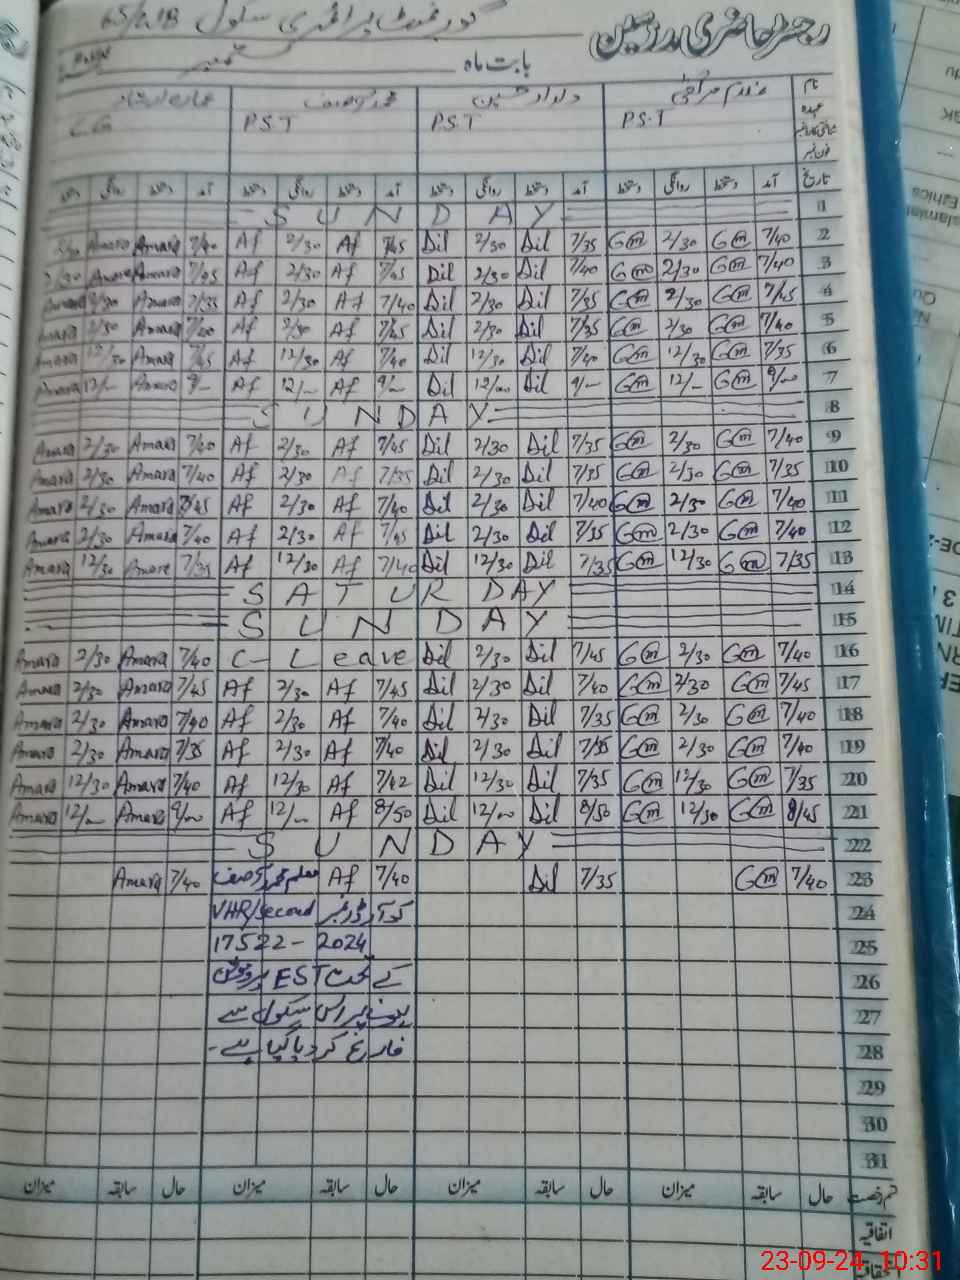 گورنمنٹ پرائمری سکول 65/G.B
رجسٹر حاضری مدرسین
بابت ماہ ستمبر
نام غلام مرتضیٰ دلدار حسین محمد آصف
عہدہ P.S.T P.S.T P.S.T CG
فون نمبر
تاریخ آمد دستخط روانگی دستخط آمد دستخط روانگی دستخط آمد دستخط روانگی دستخط آمد دستخط روانگی دستخط
1 SUNDAY
2 7/40 Gm 2/30 Gm 7/35 Dil 2/30 Dil 7/45 Af 2/30 Af 7/40 Amara Amara
3 7/40 Gm 2/30 Gm 7/40 Dil 2/30 Dil 7/45 Af 2/30 Af 7/45 Amara Amara 2/30
4 7/45 Gm 2/30 Gm 7/35 Dil 2/30 Dil 7/40 Af 2/30 Af 7/35 Amara 2/30 Amara
5 7/40 Gm 2/30 Gm 7/35 Dil 2/30 Dil 7/45 Af 2/30 Af 7/40 Amara 2/30 Amara
6 7/35 Gm 12/30 Gm 7/40 Dil 12/30 Dil 7/40 Af 12/30 Af 7/45 Amara 12/30 Amara
7 9/00 Gm 12/00 Gm 9/00 Dil 12/00 Dil 9/00 Af 12/00 Af 9/00 Amara 12/00 Amara
8 SUNDAY
9 7/40 Gm 2/30 Gm 7/35 Dil 2/30 Dil 7/45 Af 2/30 Af 7/40 Amara 2/30 Amara
10 7/35 Gm 2/30 Gm 7/35 Dil 2/30 Dil 7/35 Af 2/30 Af 7/40 Amara 2/30 Amara
11 7/40 Gm 2/30 Gm 7/40 Dil 2/30 Dil 7/40 Af 2/30 Af 7/45 Amara 2/30 Amara
12 7/40 Gm 2/30 Gm 7/35 Dil 2/30 Dil 7/45 Af 2/30 Af 7/40 Amara 2/30 Amara
13 7/35 Gm 12/30 Gm 7/35 Dil 12/30 Dil 7/40 Af 12/30 Af 7/35 Amara 12/30 Amara
14 SATURDAY
15 SUNDAY
16 7/40 Gm 2/30 Gm 7/45 Dil 2/30 Dil C-Leave 7/40 Amara 2/30 Amara
17 7/45 Gm 2/30 Gm 7/40 Dil 2/30 Dil 7/45 Af 2/30 Af 7/45 Amara 2/30 Amara
18 7/40 Gm 2/30 Gm 7/35 Dil 2/30 Dil 7/40 Af 2/30 Af 7/40 Amara 2/30 Amara
19 7/40 Gm 2/30 Gm 7/35 Dil 2/30 Dil 7/40 Af 2/30 Af 7/35 Amara 2/30 Amara
20 7/35 Gm 12/30 Gm 7/35 Dil 12/30 Dil 7/42 Af 12/30 Af 7/40 Amara 12/30 Amara
21 8/45 Gm 12/30 Gm 8/50 Dil 12/00 Dil 8/50 Af 12/00 Af 9/00 Amara 12/00 Amara
22 SUNDAY
23 7/40 Gm 7/35 Dil 7/40 Af معلم محمد آصف 7/40 Amara
24 کو آرڈر نمبر VHR/Second
25 17522-2024
26 کے تحت EST پروموشن
27 ہونے پر اس سکول سے
28 فارغ کر دیا گیا ہے۔
29
30
31
قسم رخصت حال سابقہ میزان حال سابقہ میزان حال سابقہ میزان حال سابقہ میزان
اتفاقیہ
23-09-24 10:31